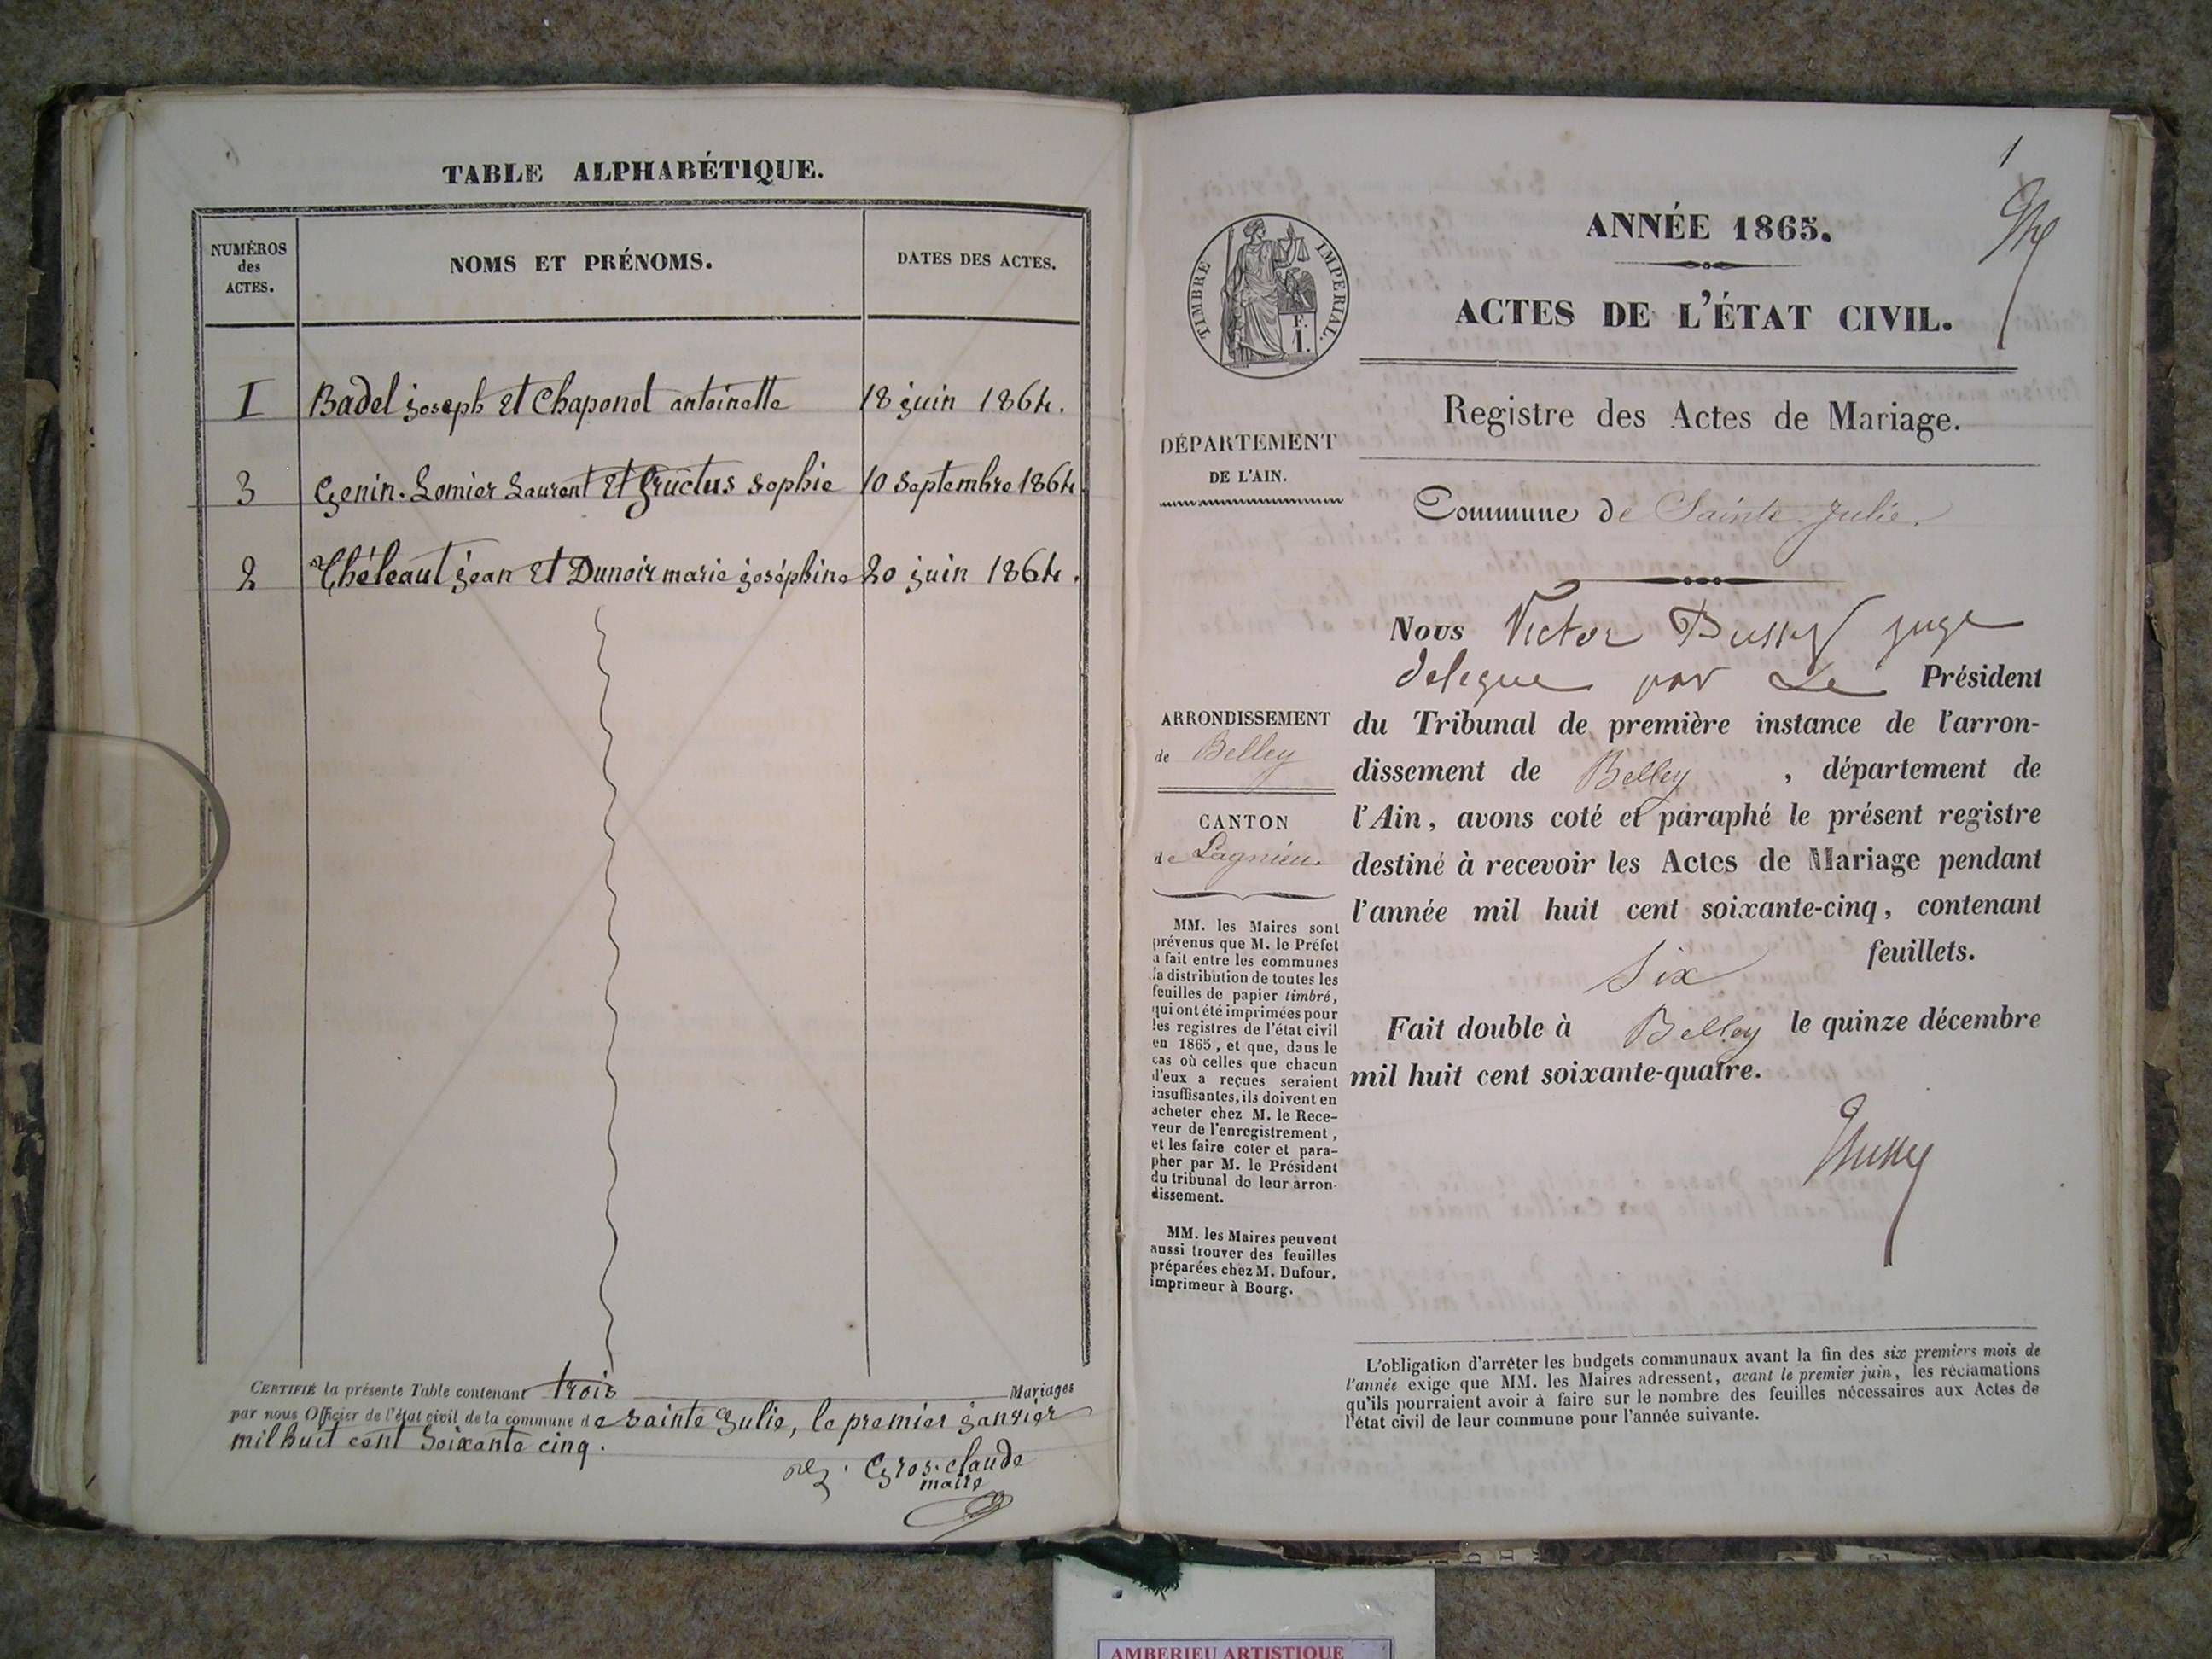 TABLE ALPHABÉTIQUE.
NUMÉROS
des
ACTES.
NOMS ET PRÉNOMS.
DATES DES ACTES.
1 Badel joseph Et Chaponot antoinette 18 juin 1864.
3 Genin-Lomier Laurent Et Fructus sophie 10 septembre 1864
2 Théleaut jean Et Dunoir marie joséphine 20 juin 1864.
CERTIFIÉ la présente Table contenant trois Mariages
par nous Officier de l'état civil de la commune de sainte Julie, le premier janvier
mil huit cent soixante cinq.
Gros-claude
maire
1
TIMBRE IMPERIAL.
F.
1.
ANNÉE 1865.
ACTES DE L'ÉTAT CIVIL.
Registre des Actes de Mariage.
DÉPARTEMENT
DE L'AIN.
Commune de Sainte-Julie.
Nous Victor Bussy juge
delegue par Le Président
du Tribunal de première instance de l'arron-
dissement de Belley, département de
l'Ain, avons coté et paraphé le présent registre
destiné à recevoir les Actes de Mariage pendant
l'année mil huit cent soixante-cinq, contenant
six feuillets.
Fait double à Belley le quinze décembre
mil huit cent soixante-quatre.
Bussy
ARRONDISSEMENT
de Belley
CANTON
de Lagnieu.
MM. les Maires sont
prévenus que M. le Préfet
a fait entre les communes
la distribution de toutes les
feuilles de papier timbré,
qui ont été imprimées pour
les registres de l'état civil
en 1865, et que, dans le
cas où celles que chacun
d'eux a reçues seraient
insuffisantes, ils doivent en
acheter chez M. le Rece-
veur de l'enregistrement,
et les faire coter et para-
pher par M. le Président
du tribunal de leur arron-
dissement.
MM. les Maires peuvent
aussi trouver des feuilles
préparées chez M. Dufour,
imprimeur à Bourg.
L'obligation d'arrêter les budgets communaux avant la fin des six premiers mois de
l'année exige que MM. les Maires adressent, avant le premier juin, les réclamations
qu'ils pourraient avoir à faire sur le nombre des feuilles nécessaires aux Actes de
l'état civil de leur commune pour l'année suivante.
AMBERIEU ARTISTIQUE